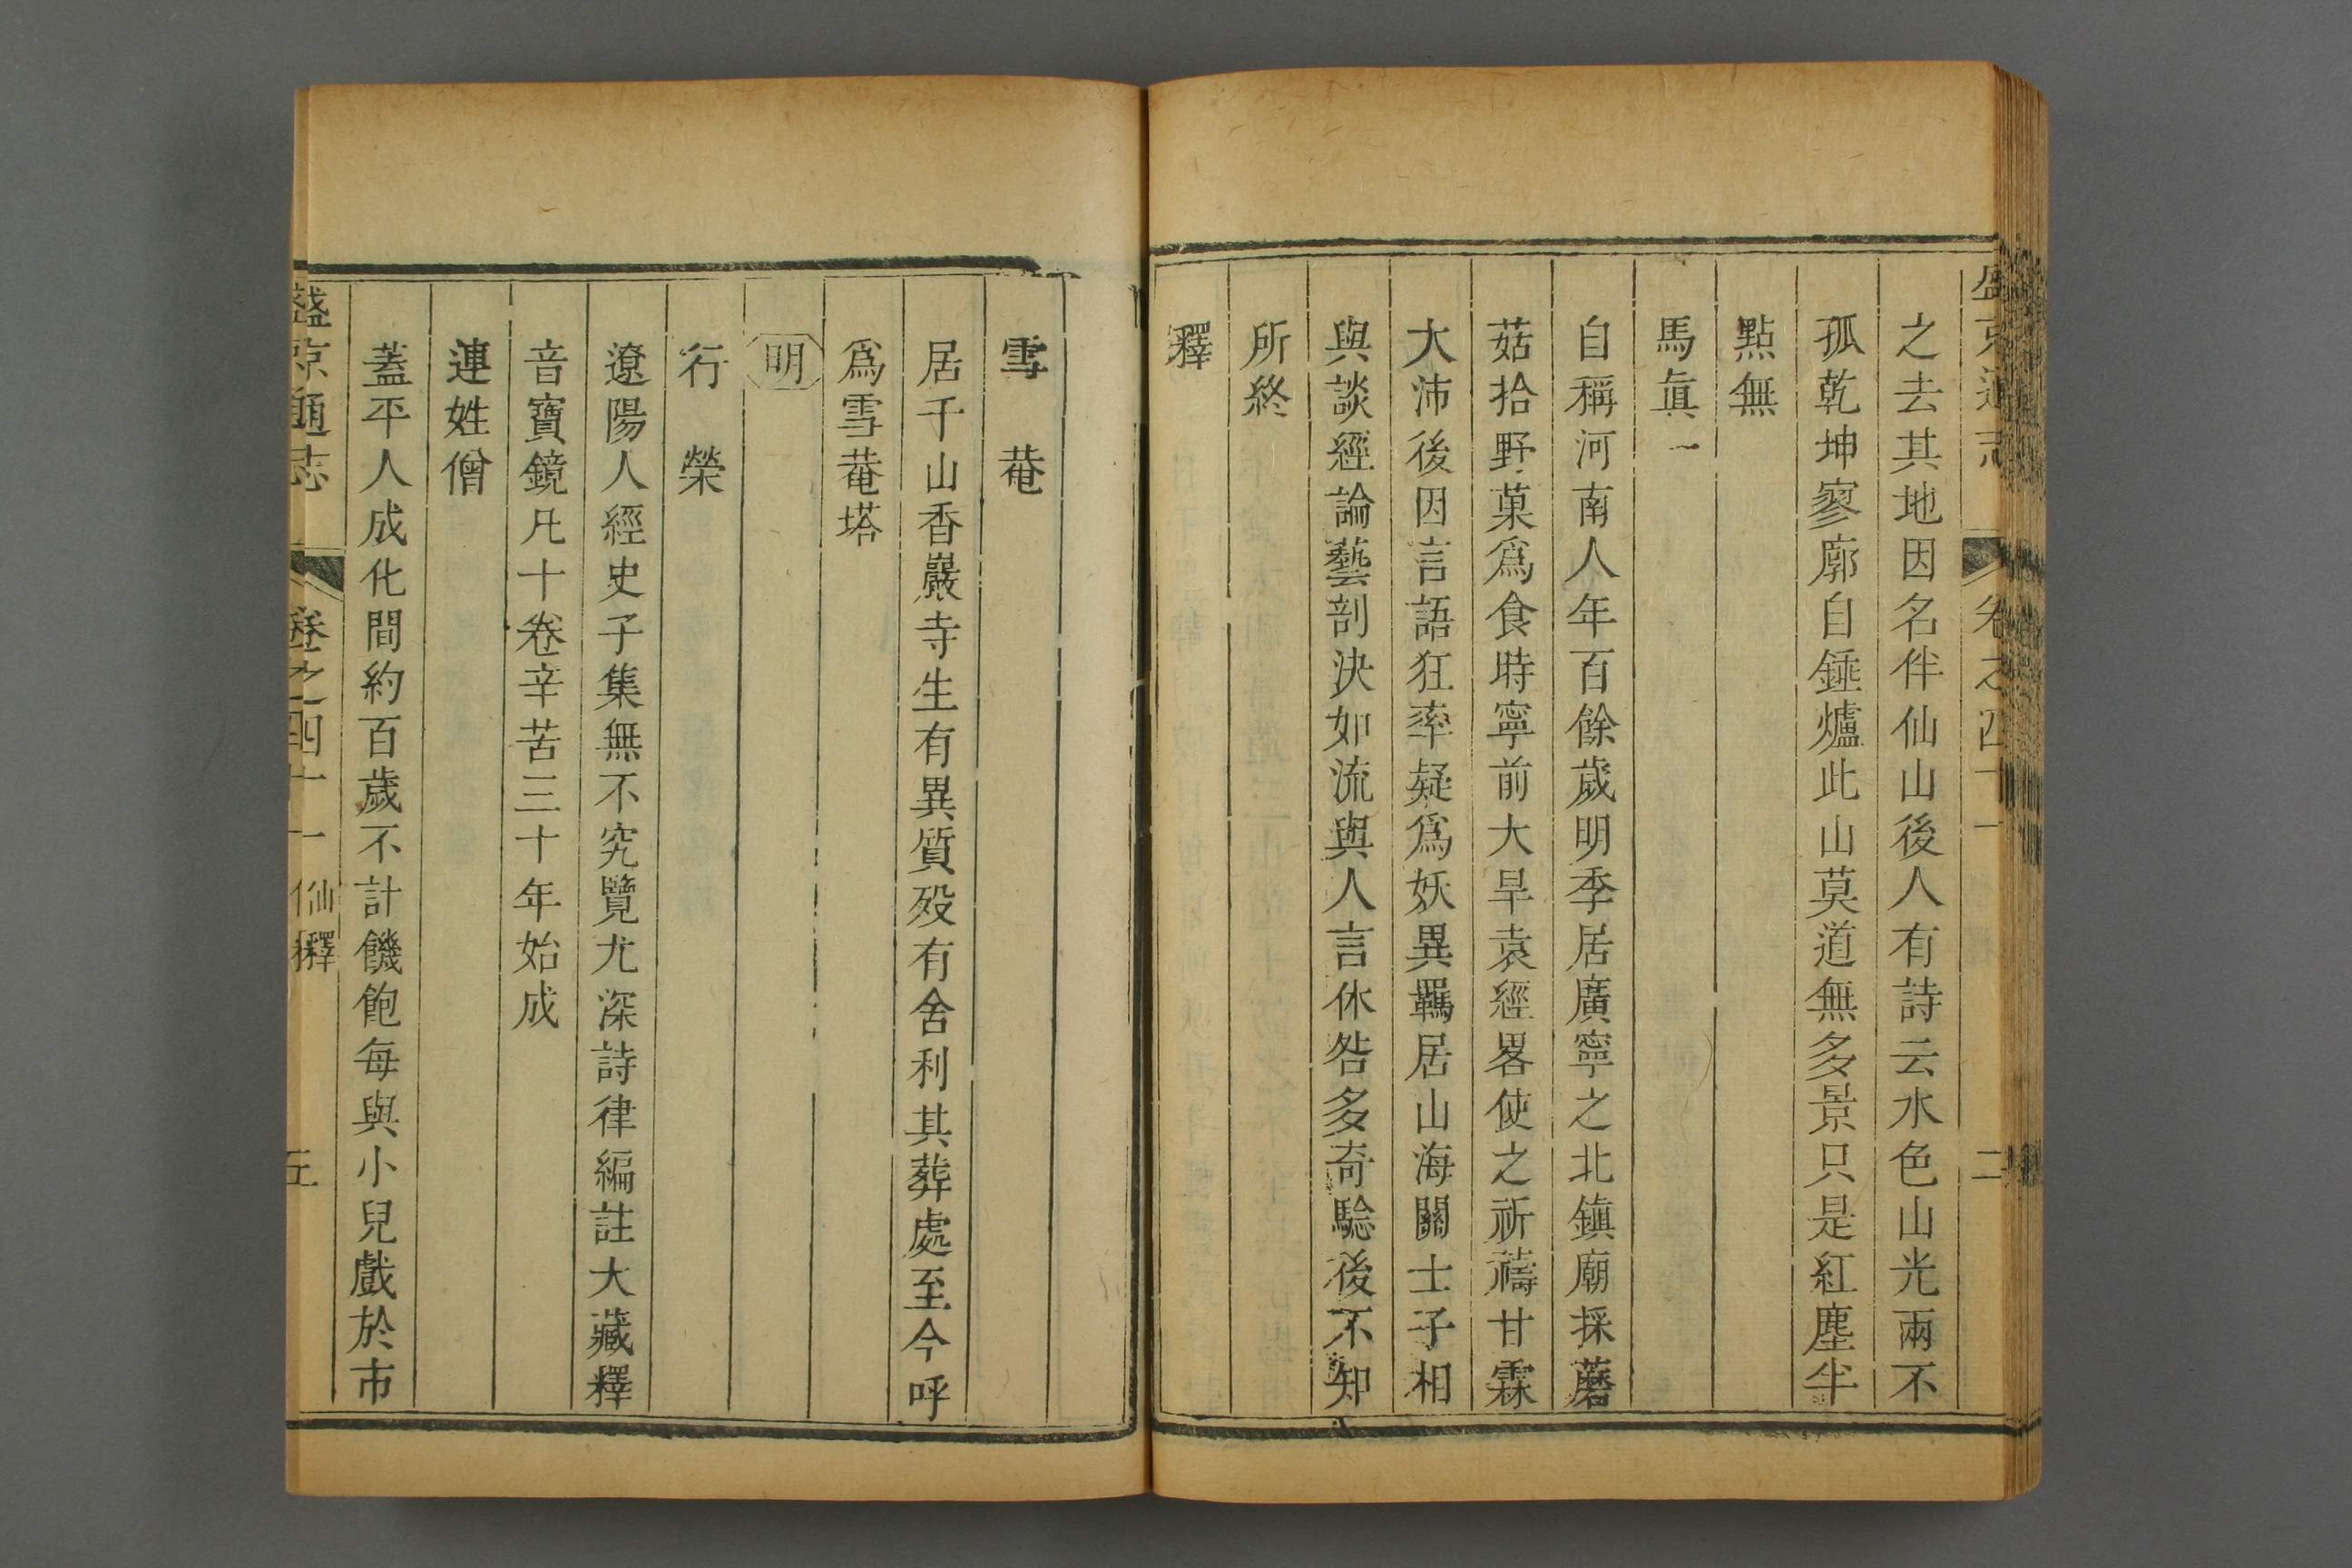 盛京通志 卷之四十一 二
之去其地因名伴仙山後人有詩云水色山光兩不
孤乾坤寥廓自錘爐此山莫道無多景只是紅塵半
點無
馬眞一
自稱河南人年百餘歲明季居廣寧之北鎮廟採蘑
菇拾野菓爲食時寧前大旱袁經畧使之祈禱甘霖
大沛後因言語狂率疑爲妖異羈居山海關士子相
與談經論藝剖決如流與人言休咎多奇騐後不知
所終
釋
雪菴
居千山香巖寺生有異質殁有舍利其葬處至今呼
爲雪菴塔
明
行榮
遼陽人經史子集無不究覽尤深詩律編註大藏釋
音寶鏡凡十卷辛苦三十年始成
連姓僧
蓋平人成化間約百歲不計饑飽每與小兒戲於市
盛京通志 卷之四十一 仙釋 五